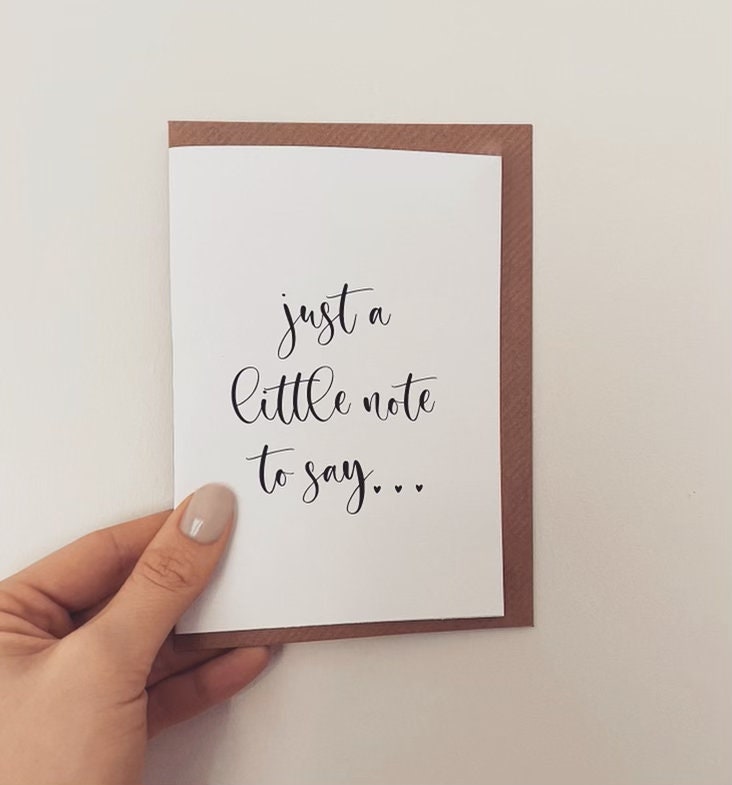 just a
little note
to say...